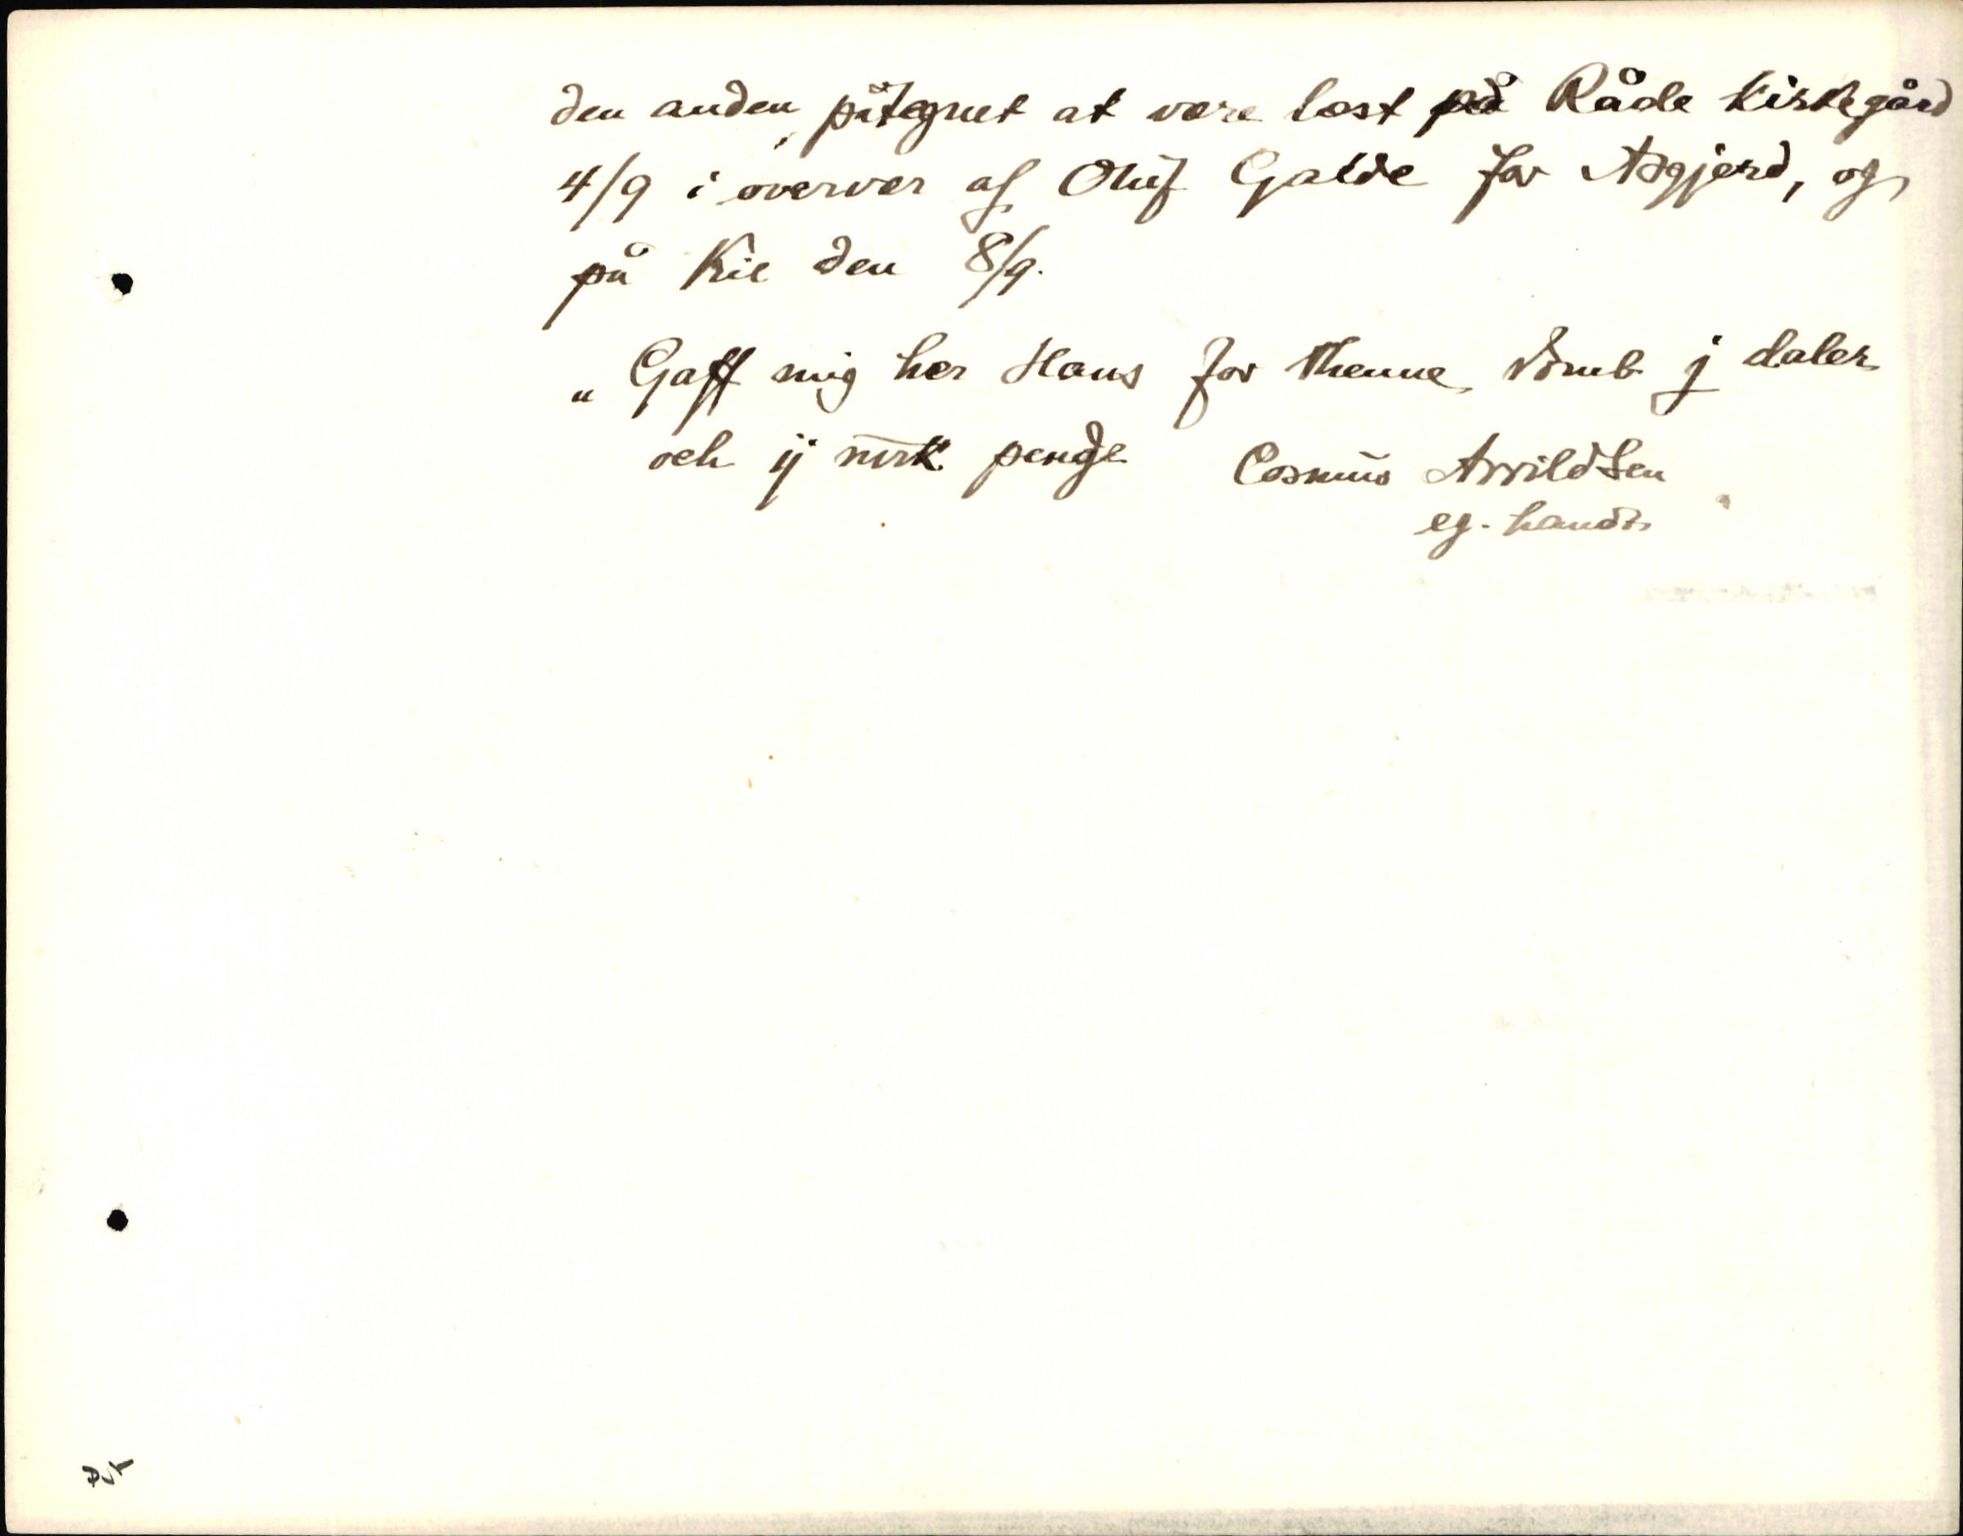 den anden påtegnet at være læst på Råde kirkegård
4/9 i overvær af Oluf Galde for Asgjerd, og
på Kil den 8/9.
„ Gaff mig her Hans for thenne domb j daler
och ij mrk penge Cosmus Arvildsen
eg. handt